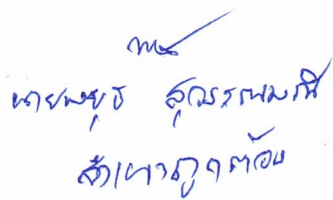 นายพยุธ สุวรรณมณี
สำเนาถูกต้อง